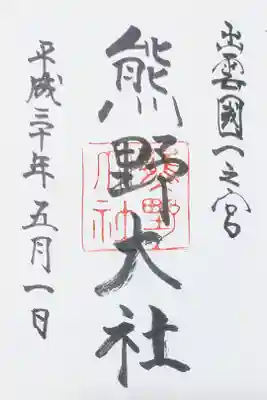 出雲國一之宮
熊野大社
平成三十年五月一日